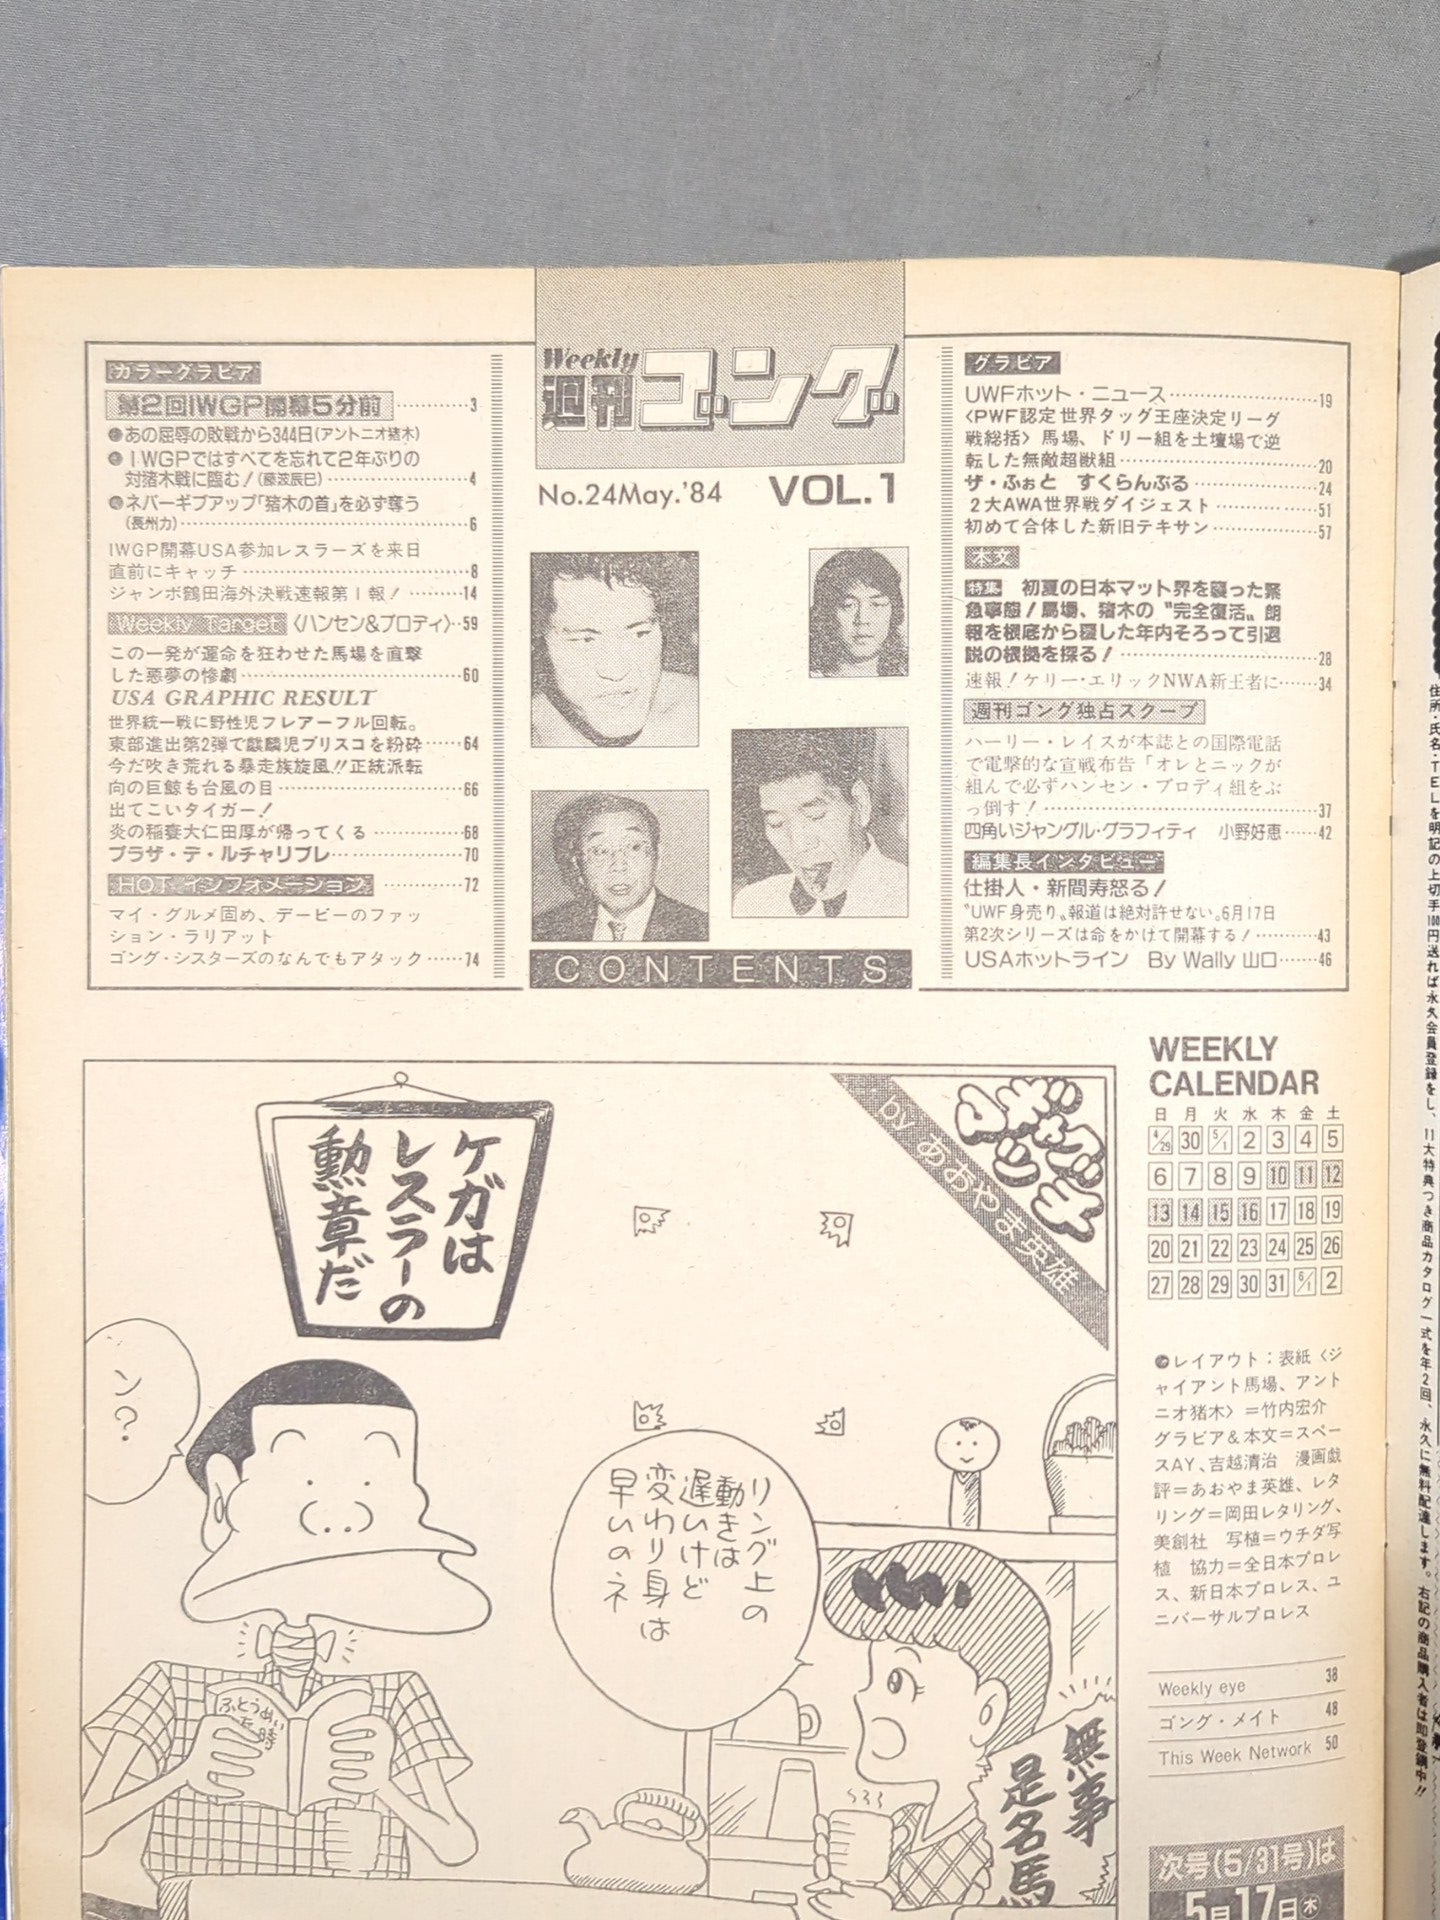 カラーグラビア
第2回IWGP開幕5分前 3
あの屈辱の敗戦から344日(アントニオ猪木)
IWGPではすべてを忘れて2年ぶりの
対猪木戦に臨む!(藤波辰巳) 4
ネバーギブアップ「猪木の首」を必ず奪う
(長州力) 6
IWGP開幕USA参加レスラーズを来日
直前にキャッチ 8
ジャンボ鶴田海外決戦速報第1報! 14
Weekly Target 〈ハンセン&ブロディ〉 59
この一発が運命を狂わせた馬場を直撃
した悪夢の惨劇 60
USA GRAPHIC RESULT
世界統一戦に野性児フレアーフル回転。
東部進出第2弾で麒麟児ブリスコを粉砕 64
今だ吹き荒れる暴走族旋風!!正統派転
向の巨鯨も台風の目 66
出てこいタイガー!
炎の稲妻大仁田厚が帰ってくる 68
プラザ・デ・ルチャリブレ 70
HOT インフォメーション 72
マイ・グルメ固め、デービーのファッ
ション・ラリアット
ゴング・シスターズのなんでもアタック 74
Weekly
週刊ゴング
No.24May.'84 VOL.1
CONTENTS
グラビア
UWFホット・ニュース 19
〈PWF認定世界タッグ王座決定リーグ
戦総括〉馬場、ドリー組を土壇場で逆
転した無敵超獣組 20
ザ・ふぉと すくらんぶる 24
2大AWA世界戦ダイジェスト 51
初めて合体した新旧テキサン 57
本文
特集 初夏の日本マット界を襲った緊
急事態!馬場、猪木の〝完全復活〟朗
報を根底から覆した年内そろって引退
説の根拠を探る! 28
速報!ケリー・エリックNWA新王者に 34
週刊ゴング独占スクープ
ハーリー・レイスが本誌との国際電話
で電撃的な宣戦布告「オレとニックが
組んで必ずハンセン・ブロディ組をぶ
っ倒す! 37
四角いジャングル・グラフィティ 小野好恵 42
編集長インタビュー
仕掛人・新間寿怒る!
〝UWF身売り〟報道は絶対許せない。6月17日
第2次シリーズは命をかけて開幕する! 43
USAホットライン By Wally 山口 46
ケガは
レスラーの
勲章だ
by あおやま英雄
ン?
リング上の
動きは
遅いけど
変わり身は
早いのネ
ふとうめい
な時
無事
是名馬
WEEKLY
CALENDAR
日 月 火 水 木 金 土
4/29 30 5/1 2 3 4 5
6 7 8 9 10 11 12
13 14 15 16 17 18 19
20 21 22 23 24 25 26
27 28 29 30 31 6/1 2
●レイアウト:表紙〈ジ
ャイアント馬場、アント
ニオ猪木〉=竹内宏介
グラビア&本文=スペー
スAY、吉越清治 漫画戯
評=あおやま英雄、レタ
リング=岡田レタリング、
美創社 写植=ウチダ写
植 協力=全日本プロレ
ス、新日本プロレス、ユ
ニバーサルプロレス
Weekly eye 38
ゴング・メイト 48
This Week Network 50
次号(5/31号)は
5月17日(木)
住所・氏名・TELを明記の上切手100円送れば永久会員登録をし、11大特典つき商品カタログ一式を年2回、永久に無料配達します。右記の商品購入者は即登録中!!